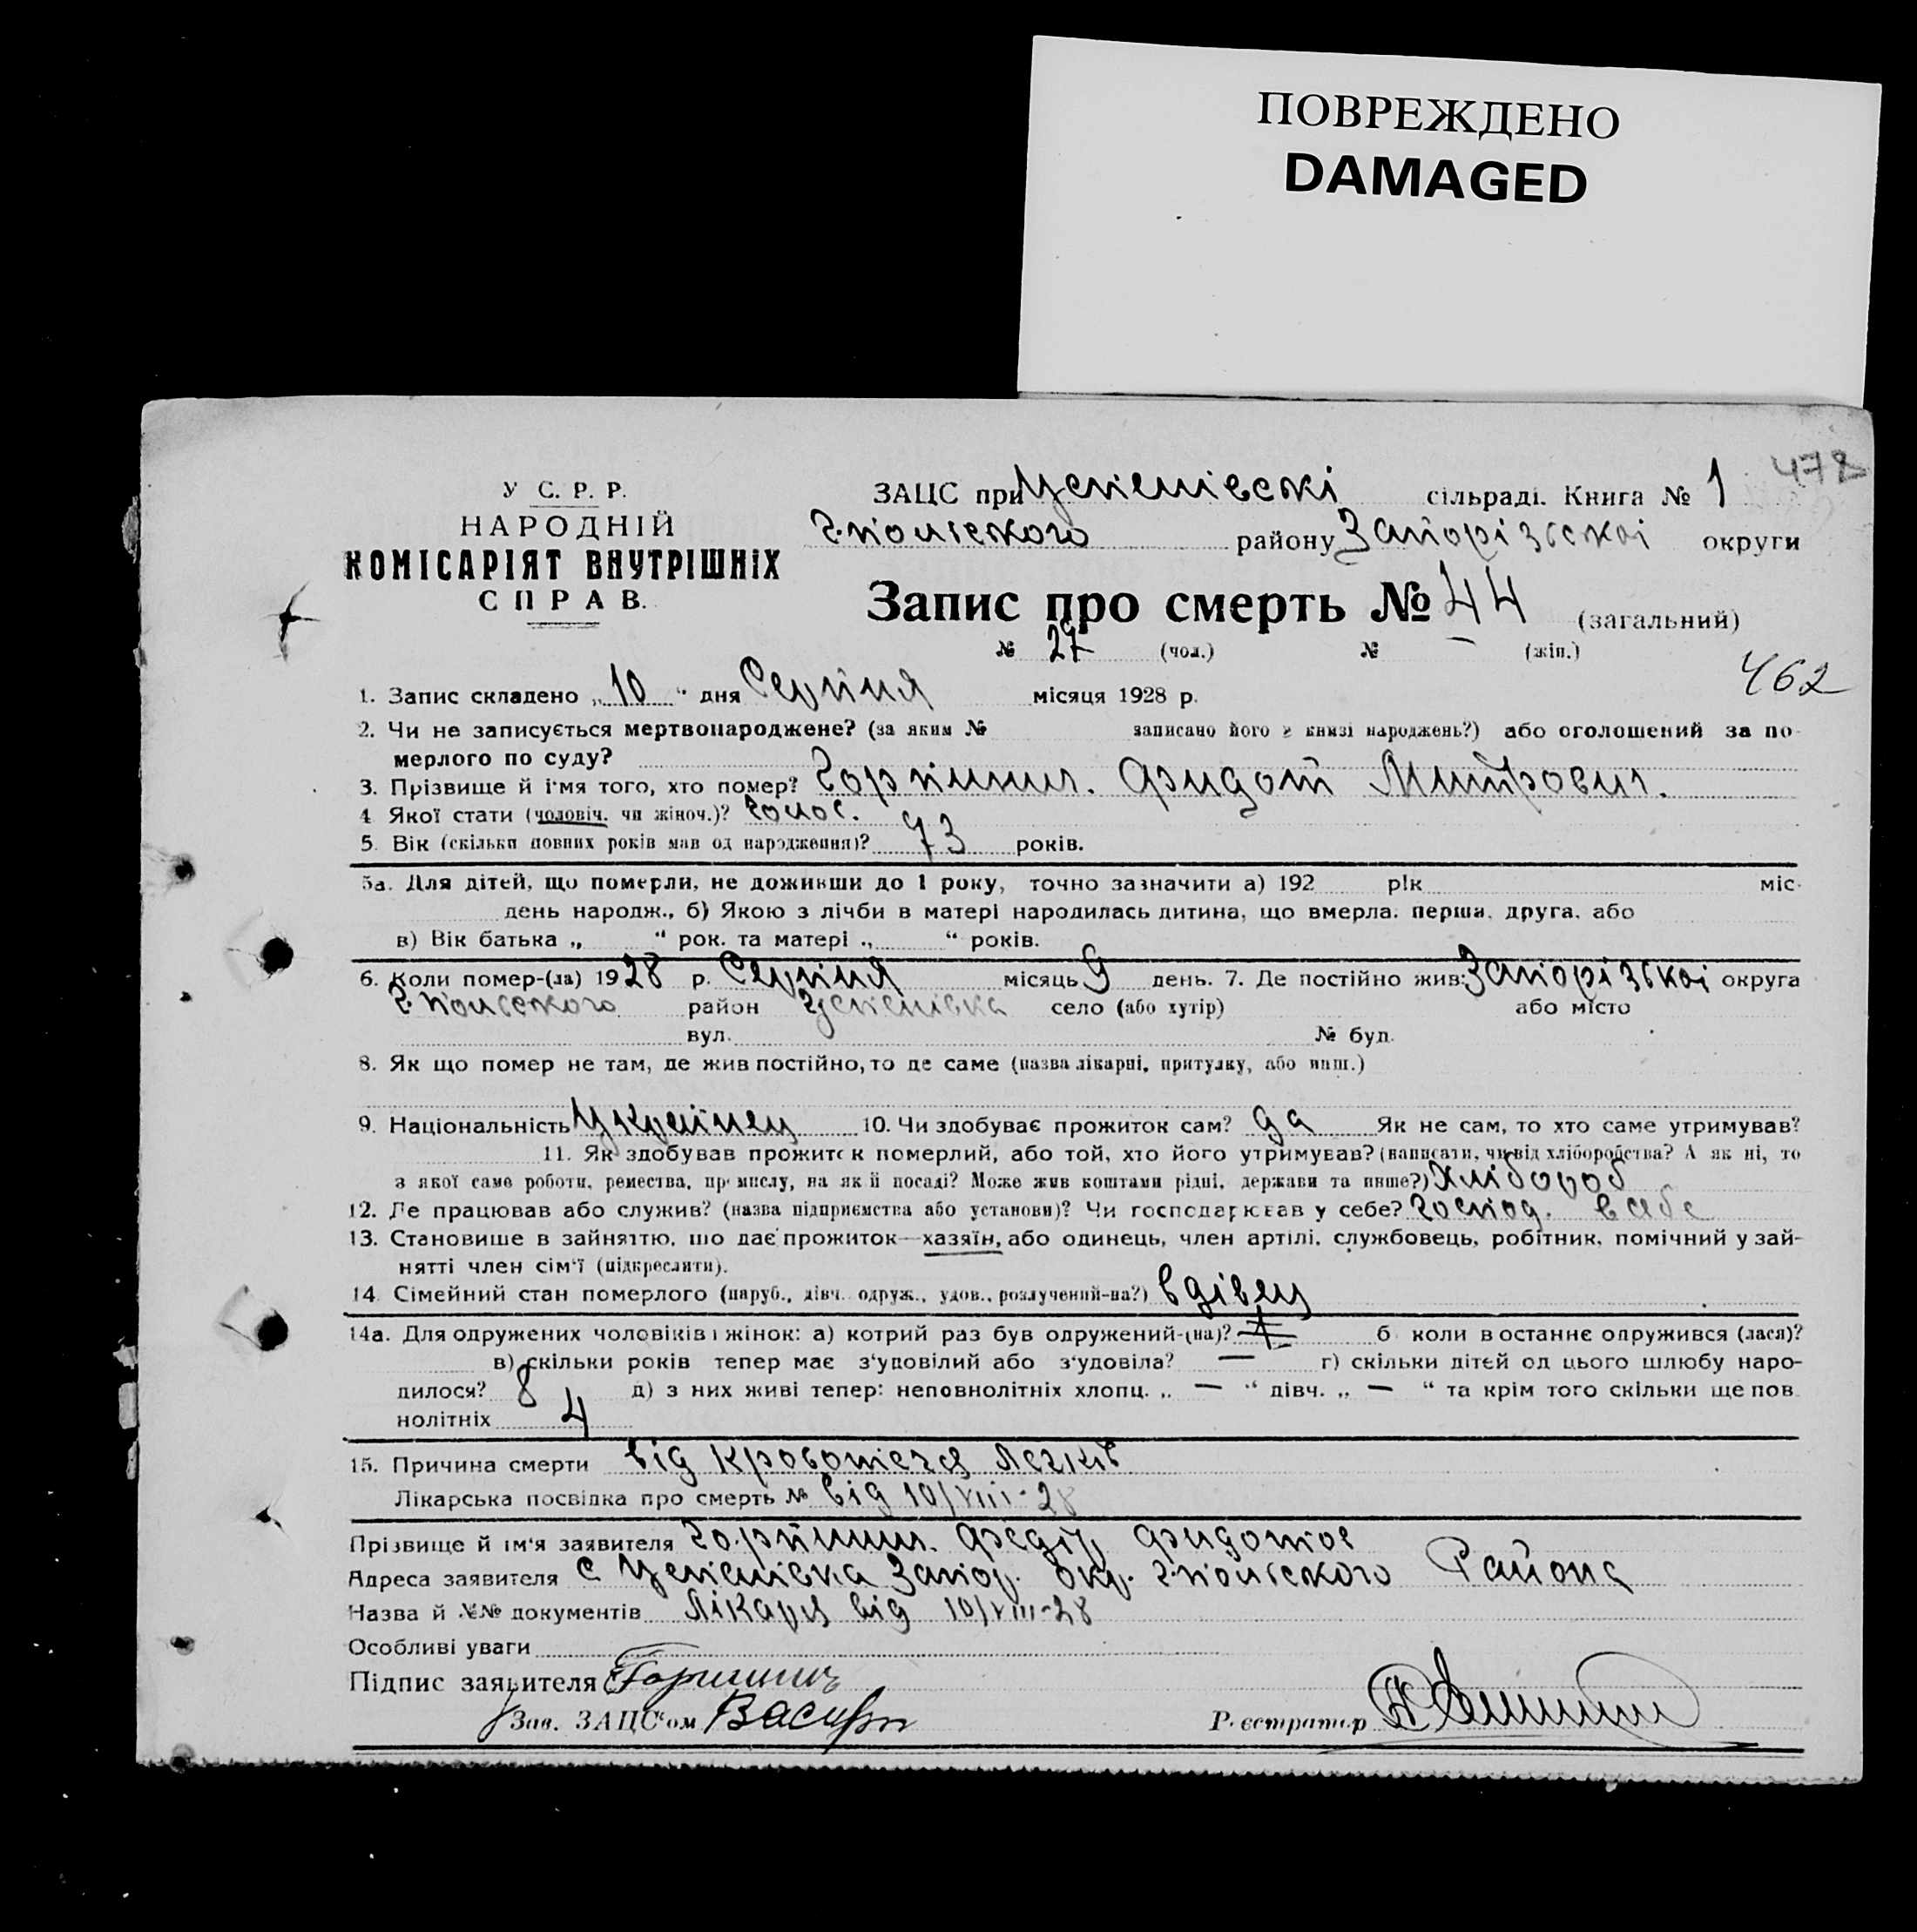 ПОВРЕЖДЕНО
DAMAGED
478
У С. Р. Р.
НАРОДНІЙ
КОМІСАРІЯТ ВНУТРІШНІХ
СПРАВ.
ЗАЦС при Успенівскі сільраді. Книга № 1
Г-польского району Запорізької округи
Запис про смерть № 44 (загальний)
№ 27 (чол.) № – (жін.)
462
1. Запис складено „10“ дня Серпня місяця 1928 р.
2. Чи не записується мертвонароджене? (за яким № записано його в книзі народжень?) або оголошений за по-
мерлого по суду?
3. Прізвище й ім'я того, хто помер? Горпинич. Фидот Митрович.
4 Якої стати (чоловіч. чи жіноч.)? Чолос.
5. Вік (скільки повних років мав од народження)? 73 років.
5а. Для дітей, що померли, не доживши до 1 року, точно зазначити а) 192 рік міс.
день народж., б) Якою з лічби в матері народилась дитина, що вмерла: перша, друга, або
в) Вік батька „ “ рок. та матері „ “ років.
6. Коли помер-(ла) 1928 р. Серпня місяць 9 день. 7. Де постійно жив: Запорізької округа
Г-польского район Успенівка село (або хутір) або місто
вул. № буд.
8. Як що помер не там, де жив постійно, то де саме (назва лікарні, притулку, або инш.)
9. Національність Українец 10. Чи здобуває прожиток сам? да Як не сам, то хто саме утримував?
11. Як здобував прожиток померлий, або той, хто його утримував? (написати, чи від хліборобства? А як ні, то
з якої саме роботи, ремества, промислу, на якій посаді? Може жив коштами рідні, держави та инше?) Хлібороб
12. Де працював або служив? (назва підприємства або установи)? Чи господарював у себе? Господ. в себе
13. Становише в зайняттю, що дає прожиток—хазяїн, або одинець, член артілі, службовець, робітник, помічний у зай-
нятті член сім'ї (підкреслити).
14. Сімейний стан померлого (паруб., дівч. одруж., удов., розлучений-на?) вдівец
14а. Для одружених чоловіків і жінок: а) котрий раз був одружений-(на)? 1 б коли востанне одружився (лася)?
в) скільки років тепер має з'удовілий або з'удовіла? — г) скільки дітей од цього шлюбу наро-
дилося? 8 д) з них живі тепер: неповнолітніх хлопц. „ — “ дівч. „ — “ та крім того скільки ще пов
нолітніх 4
15. Причина смерти від кровотеча легків
Лікарська посвідка про смерть № від 10/VIII-28
Прізвище й ім'я заявителя Горпинич. Федір Фидотов
Адреса заявителя с Успенівка Запор. окр. Г-польского Района
Назва й №№ документів Лікаря від 10/VIII-28
Особливі уваги
Підпис заявителя Горпинич
Зав. ЗАЦС'ом
Реєстратор